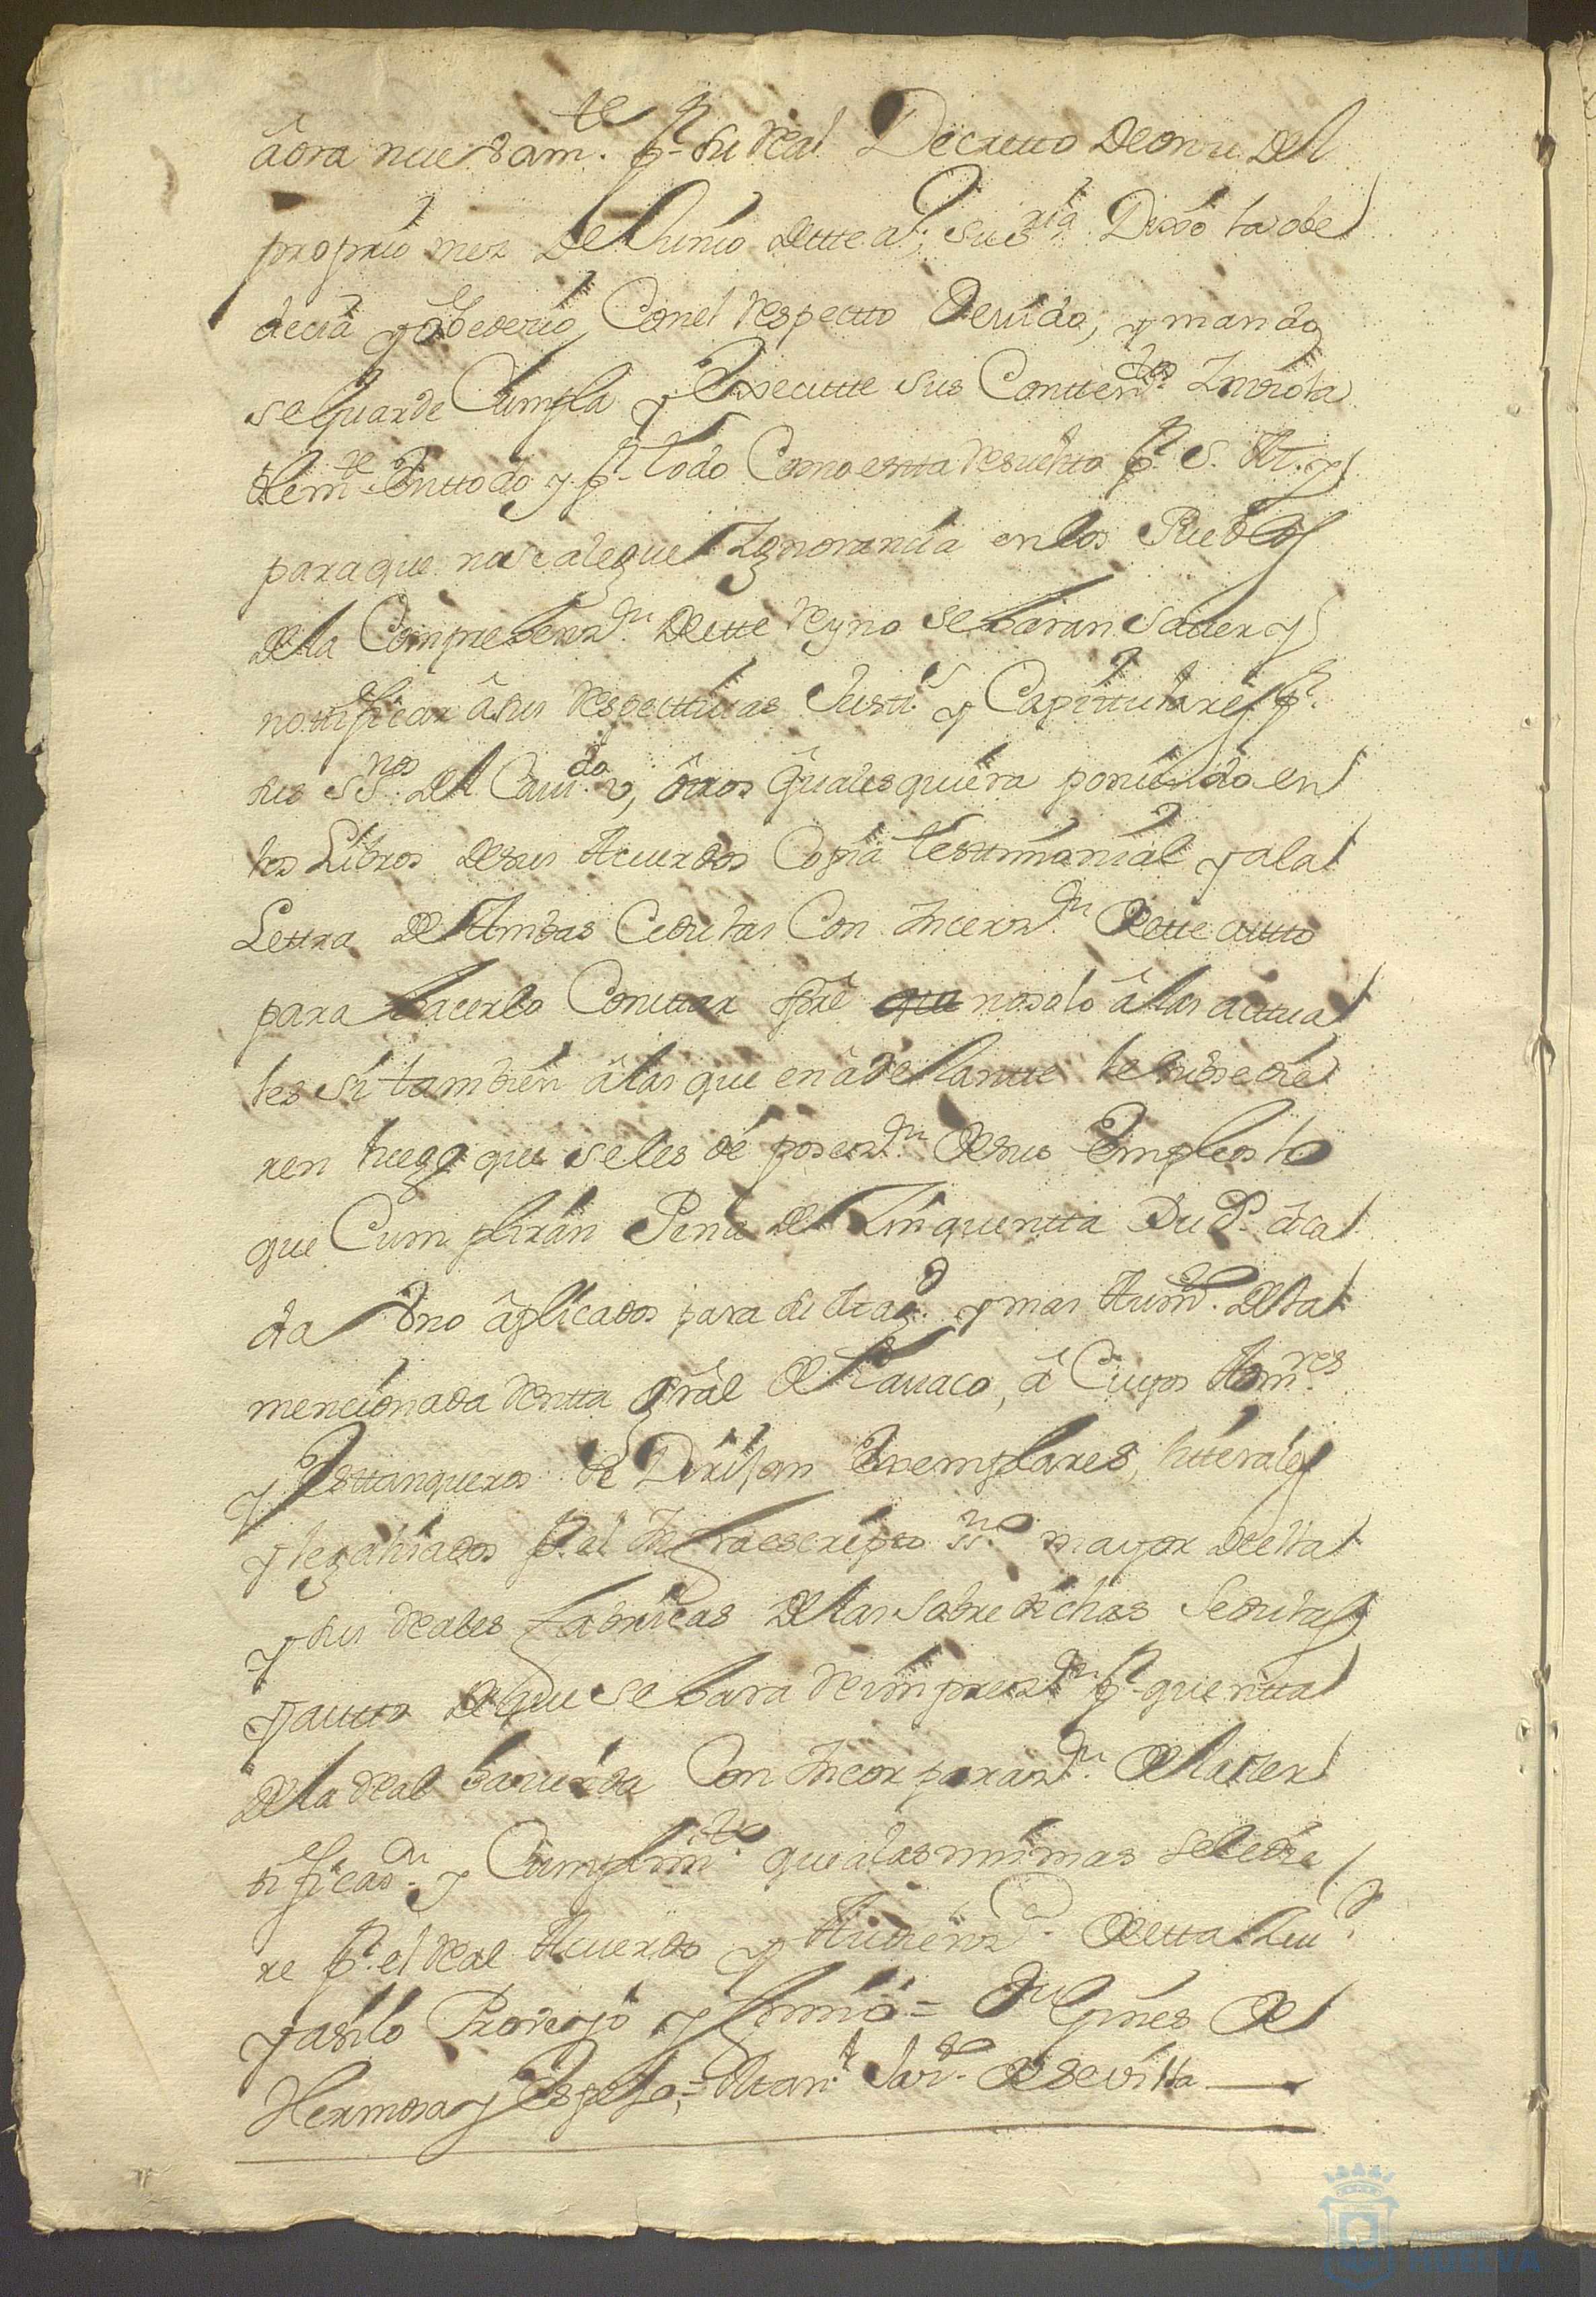 âora nuebam.te p.r su Real Decretto de onze del
proprio mez de Junio de ette a.o; su s.ria Dixo la obe
decia y obedecio Con el respectto devido, y mando
se Guarde Cumpla y Executte sus Conttenidos Inviola
blem.te En ttodo y p.r todo Como estta resuelto p.r S. M. y
para que no se alegue Ignorancia en los Pueblos
de la Comprehenz.on de ette Reyno se haran saver y
nottificar â sus respecttivas Justt.s y Capittulares p.r
sus ss.nos del Cavi.do v, ôtros Qualesquiera poniendo en
los Libros de sus Acuerdos Copia testimonial y ala
Lettra de Ambas Cedulas Con Incerz.on de ette autto
para hacerlo Consttar spre no solo â los acttua
les si tambien â los que en âdelantte le subcedie
ren luego que se les dé posez.on de sus Empleos lo
que Cumplirán Pena de Zinquentta Du.s â ca
da Vno âplicados para su Mag.d y mas Aum.to de la
mencionada Rentta Grâl de Tavaco, â Cuyos Adm.res
y Esttanqueros se Dirijan Exemplares, literales
y legaliados p.r el Infraescripto ss.no mayor de ella
y sus Reales Fabricas de las sobre dichas Sedulas
y autto de que se hara Reimprez.on p.r quentta
de la Real hacienda Con Incorporaz.on de la zer
tificaz.on y Cumplim.to que a las mismas se le die
re p.r el Real Acuerdo y Audienz.a de etta Ciu.d
y asi lo Proveyo y firmó = D.n Gines de
Hermosa y Espejo; = Man.l Jav.o de Sevilla
Ayuntamiento de
HUELVA